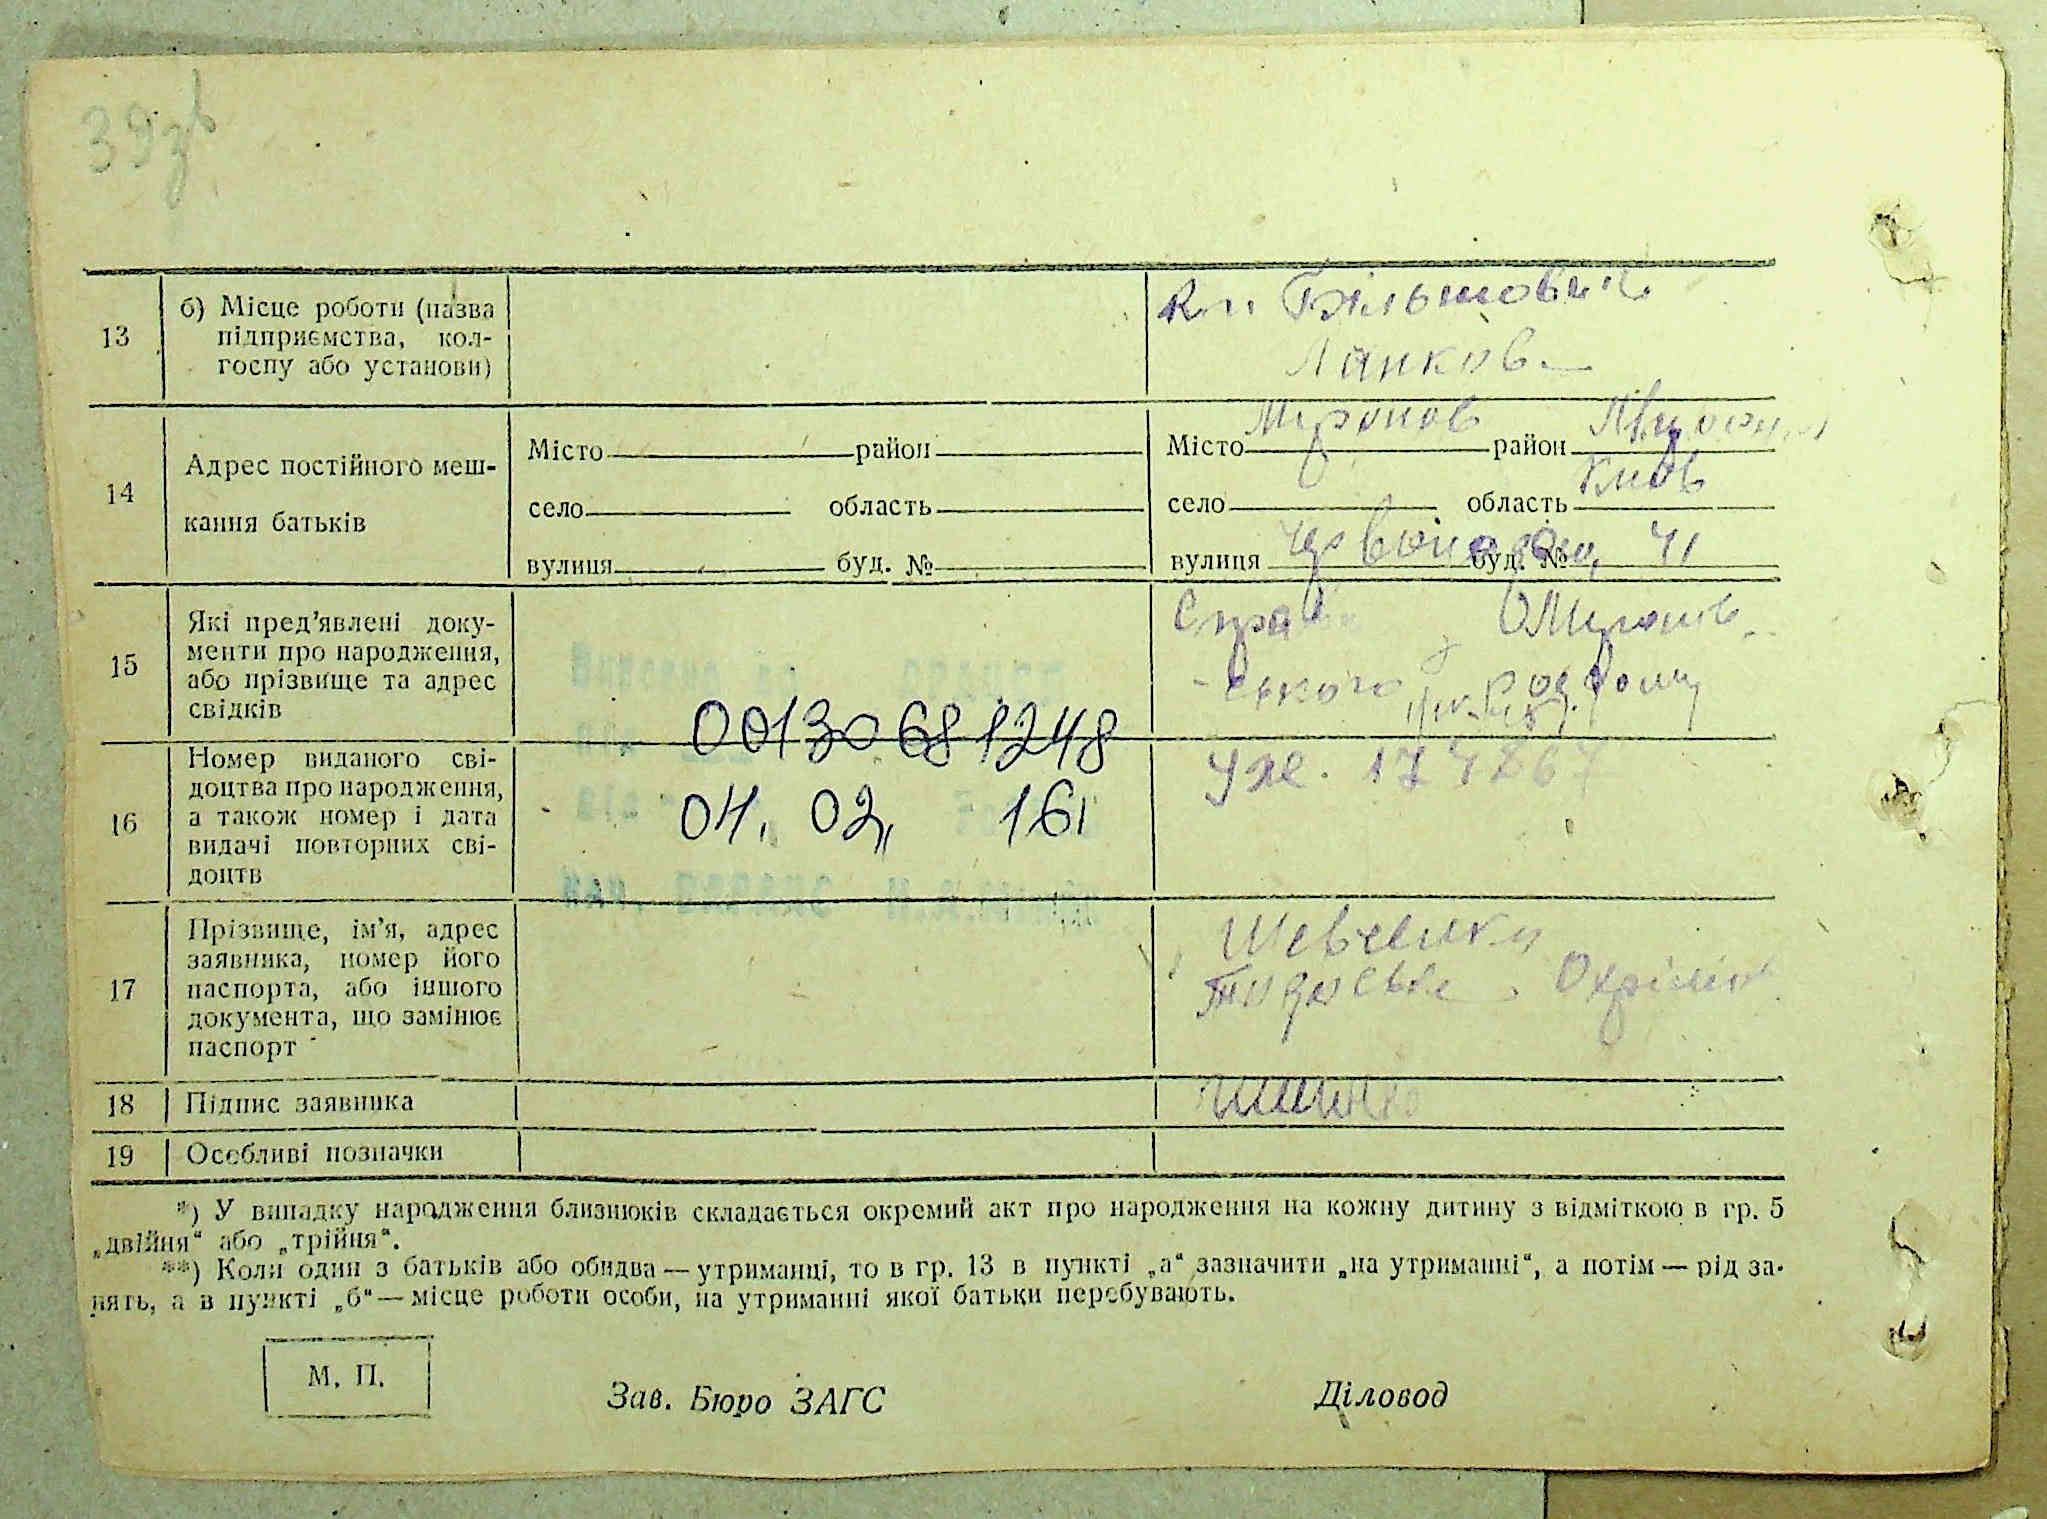 39зв
13
б) Місце роботи (назва
підприємства, кол-
госпу або установи)
Більшовик
Ланкова
14
Адрес постійного меш-
кання батьків
Місто район
село область
вулиця буд. №
Місто Миронов район
село область Київ
вулиця буд. № 41
15
Які пред’явлені доку-
менти про народження,
або прізвище та адрес
свідків
16
Номер виданого сві-
доцтва про народження,
а також номер і дата
видачі повторних сві-
доцтв
00130681248
04. 02, 16
17
Прізвище, ім’я, адрес
заявника, номер його
паспорта, або іншого
документа, що замінює
паспорт
Шевченко
18
Підпис заявника
19
Особливі позначки
*) У випадку народження близнюків складається окремий акт про народження на кожну дитину з відміткою в гр. 5
„двійня“ або „трійня“.
**) Коли один з батьків або обидва — утриманці, то в гр. 13 в пункті „а“ зазначити „на утриманні“, а потім — рід за-
нять, а в пункті „б“ — місце роботи особи, на утриманні якої батьки перебувають.
М. П.
Зав. Бюро ЗАГС
Діловод